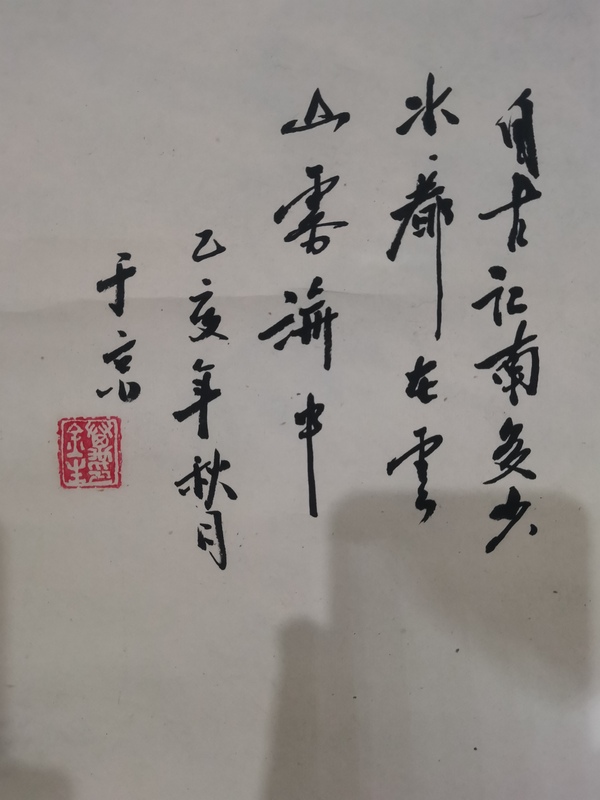 自古江南多少
水都在雲
山雾中
乙亥年秋月
于京